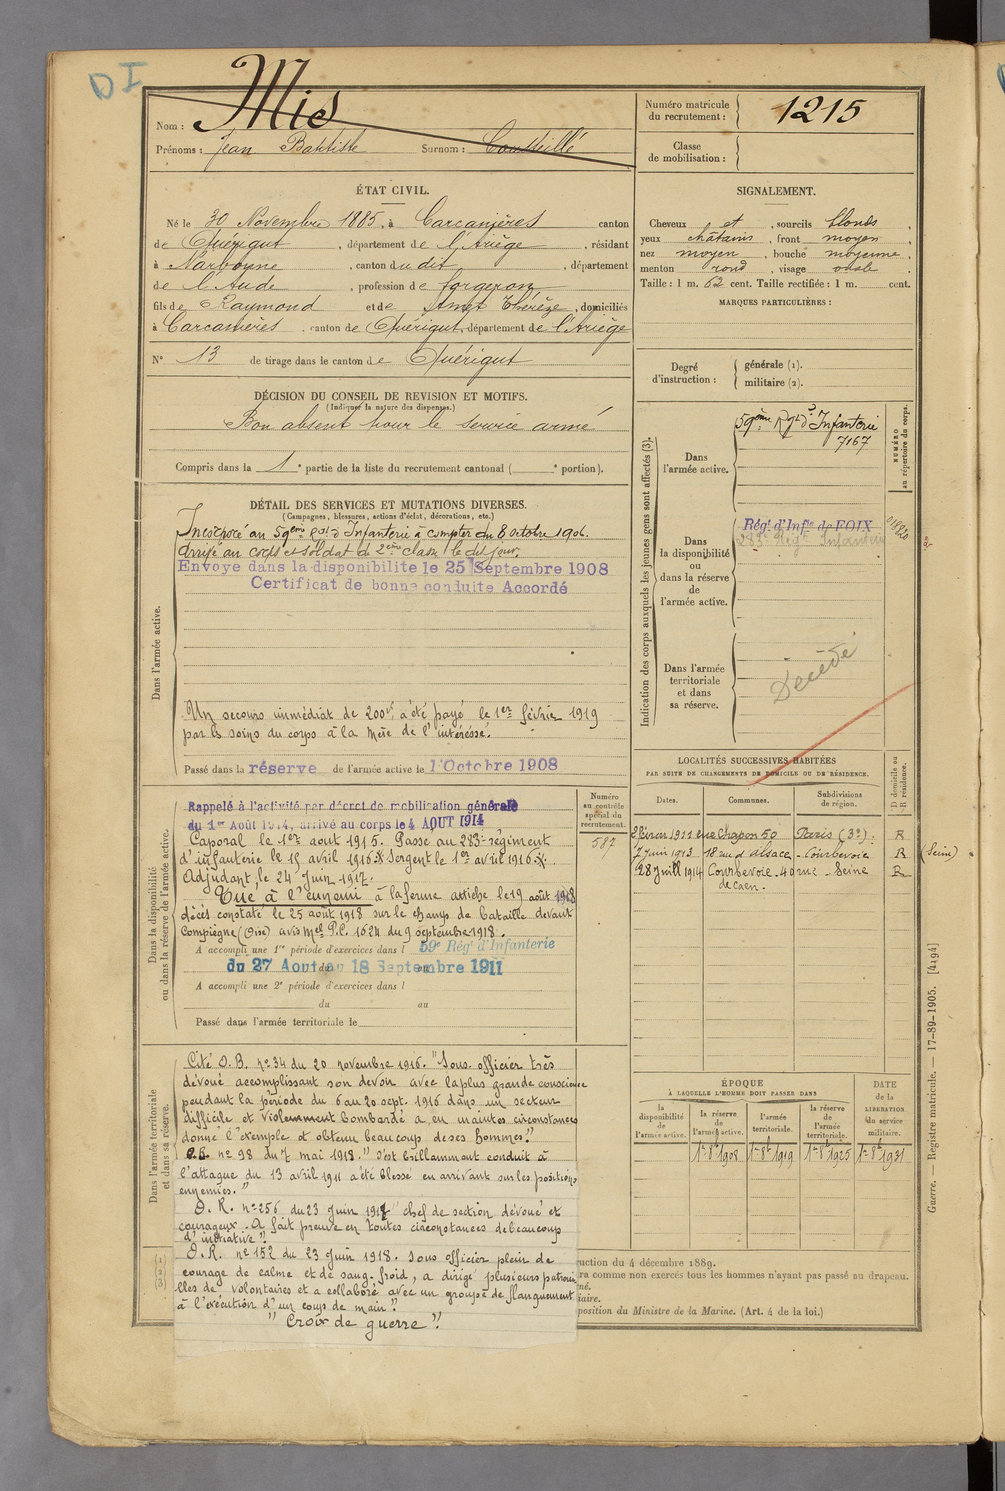 DI
Nom : Mis
Prénoms : Jean Baptiste Surnom : Couteillé
Numéro matricule du recrutement : 1215
Classe de mobilisation :
ÉTAT CIVIL.
Né le 30 Novembre 1885, à Carcanières canton
de Quérigut, département de l'Ariège, résidant
à Narbonne, canton du dit, département
de l'Aude, profession de forgeron
fils de Raymond et de Thérèze, domiciliés
à Carcanières, canton de Quérigut, département de l'Ariège
N° 13 de tirage dans le canton de Quérigut
SIGNALEMENT.
Cheveux et, sourcils blonds,
yeux châtains, front moyen,
nez moyen, bouche moyenne,
menton rond, visage ovale
Taille : 1 m. 62 cent. Taille rectifiée : 1 m. cent.
MARQUES PARTICULIÈRES :
Degré d'instruction : générale (1).
militaire (2).
DÉCISION DU CONSEIL DE REVISION ET MOTIFS.
(Indiquer la nature des dispenses.)
Bon absent pour le service armé
Compris dans la 1e partie de la liste du recrutement cantonal ( e portion).
DÉTAIL DES SERVICES ET MUTATIONS DIVERSES.
(Campagnes, blessures, actions d'éclat, décorations, etc.)
Dans l'armée active.
Incorporé au 59ème Rgt d'Infanterie à compter du 8 octobre 1906.
Arrivé au corps et soldat de 2ème classe le dit jour.
Envoye dans la disponibilite le 25 Septembre 1908
Certificat de bonne conduite Accordé
Un secours immédiat de 200f a été payé le 1er février 1919
par les soins du corps à la Mère de l'intéressé.
Passé dans la réserve de l'armée active le 1 Octobre 1908
Indication des corps auxquels les jeunes gens sont affectés (3).
NUMÉRO au répertoire du corps.
Dans l'armée active.
59ème Rgt d'Infanterie
7167
Dans la disponibilité ou dans la réserve de l'armée active.
Régt d'Infie de FOIX
283e Régt Infanterie
Dans l'armée territoriale et dans sa réserve.
Décédé
Dans la disponibilité ou dans la réserve de l'armée active.
Numéro au contrôle spécial du recrutement.
587
Rappelé à l'activité par décret de mobilisation générale
du 1er Août 1914, arrivé au corps le 4 AOUT 1914
Caporal le 1er aout 1915. Passe au 283e régiment
d'infanterie le 15 avril 1916. Sergent le 1er avril 1916.
Adjudant, le 24 Juin 1917.
Tué à l'ennemi à la ferme attiche le 19 août 1918
décès constaté le 25 août 1918 sur le champ de bataille devant
Compiègne (Oise) avis Mel P.C. 1624 du 9 septembre 1918.
A accompli une 1re période d'exercices dans l 59e Régt d'Infanterie
du 27 Aout au 18 Septembre 1911
A accompli une 2e période d'exercices dans l
du au
Passé dans l'armée territoriale le
LOCALITÉS SUCCESSIVES HABITÉES
PAR SUITE DE CHANGEMENTS DE DOMICILE OU DE RÉSIDENCE.
Dates. Communes. Subdivisions de région. D domicile ou R résidence.
2 février 1911 rue Chapon 50 Paris (3e). R
7 Juin 1913 18 rue d'alsace - Courbevoie R (Seine)
28 Juill 1914 Courbevoie. 40 rue - Seine R
de Caen.
Dans l'armée territoriale et dans sa réserve.
Cité O.B. n° 34 du 20 novembre 1916. "Sous-officier très
dévoué accomplissant son devoir avec la plus grande conscience
pendant la période du 6 au 20 sept. 1916 dans un secteur
difficile et violemment bombardé a, en maintes circonstances
donné l'exemple et obtenu beaucoup de ses hommes."
O.B. n° 98 du 7 mai 1918. "s'est brillamment conduit à
l'attaque du 13 avril 1911 a été blessé en arrivant sur les positions
ennemies."
O. R. n° 256 du 23 Juin 1917 "chef de section dévoué et
courageux. A fait preuve en toutes circonstances de beaucoup
d'initiative".
O. R. n° 152 du 23 Juin 1918. Sous officier plein de
courage de calme et de sang-froid, a dirigé plusieurs patrouilles
de volontaires et a collaboré avec un groupe de flanquement
à l'exécution d'un coup de main".
"Croix de guerre".
ÉPOQUE
À LAQUELLE L'HOMME DOIT PASSER DANS
la disponibilité de l'armée active. la réserve de l'armée active. l'armée territoriale. la réserve de l'armée territoriale.
DATE de la LIBÉRATION du service militaire.
1er 8bre 1908 1er 8bre 1919 1er 8bre 1925 1er 8bre 1931
(1)
(2)
(3)
uction du 4 décembre 1889.
ra comme non exercés tous les hommes n'ayant pas passé au drapeau.
né.
iaire.
position du Ministre de la Marine. (Art. 4 de la loi.)
Guerre. — Registre matricule. — 17-89-1905. [4194]